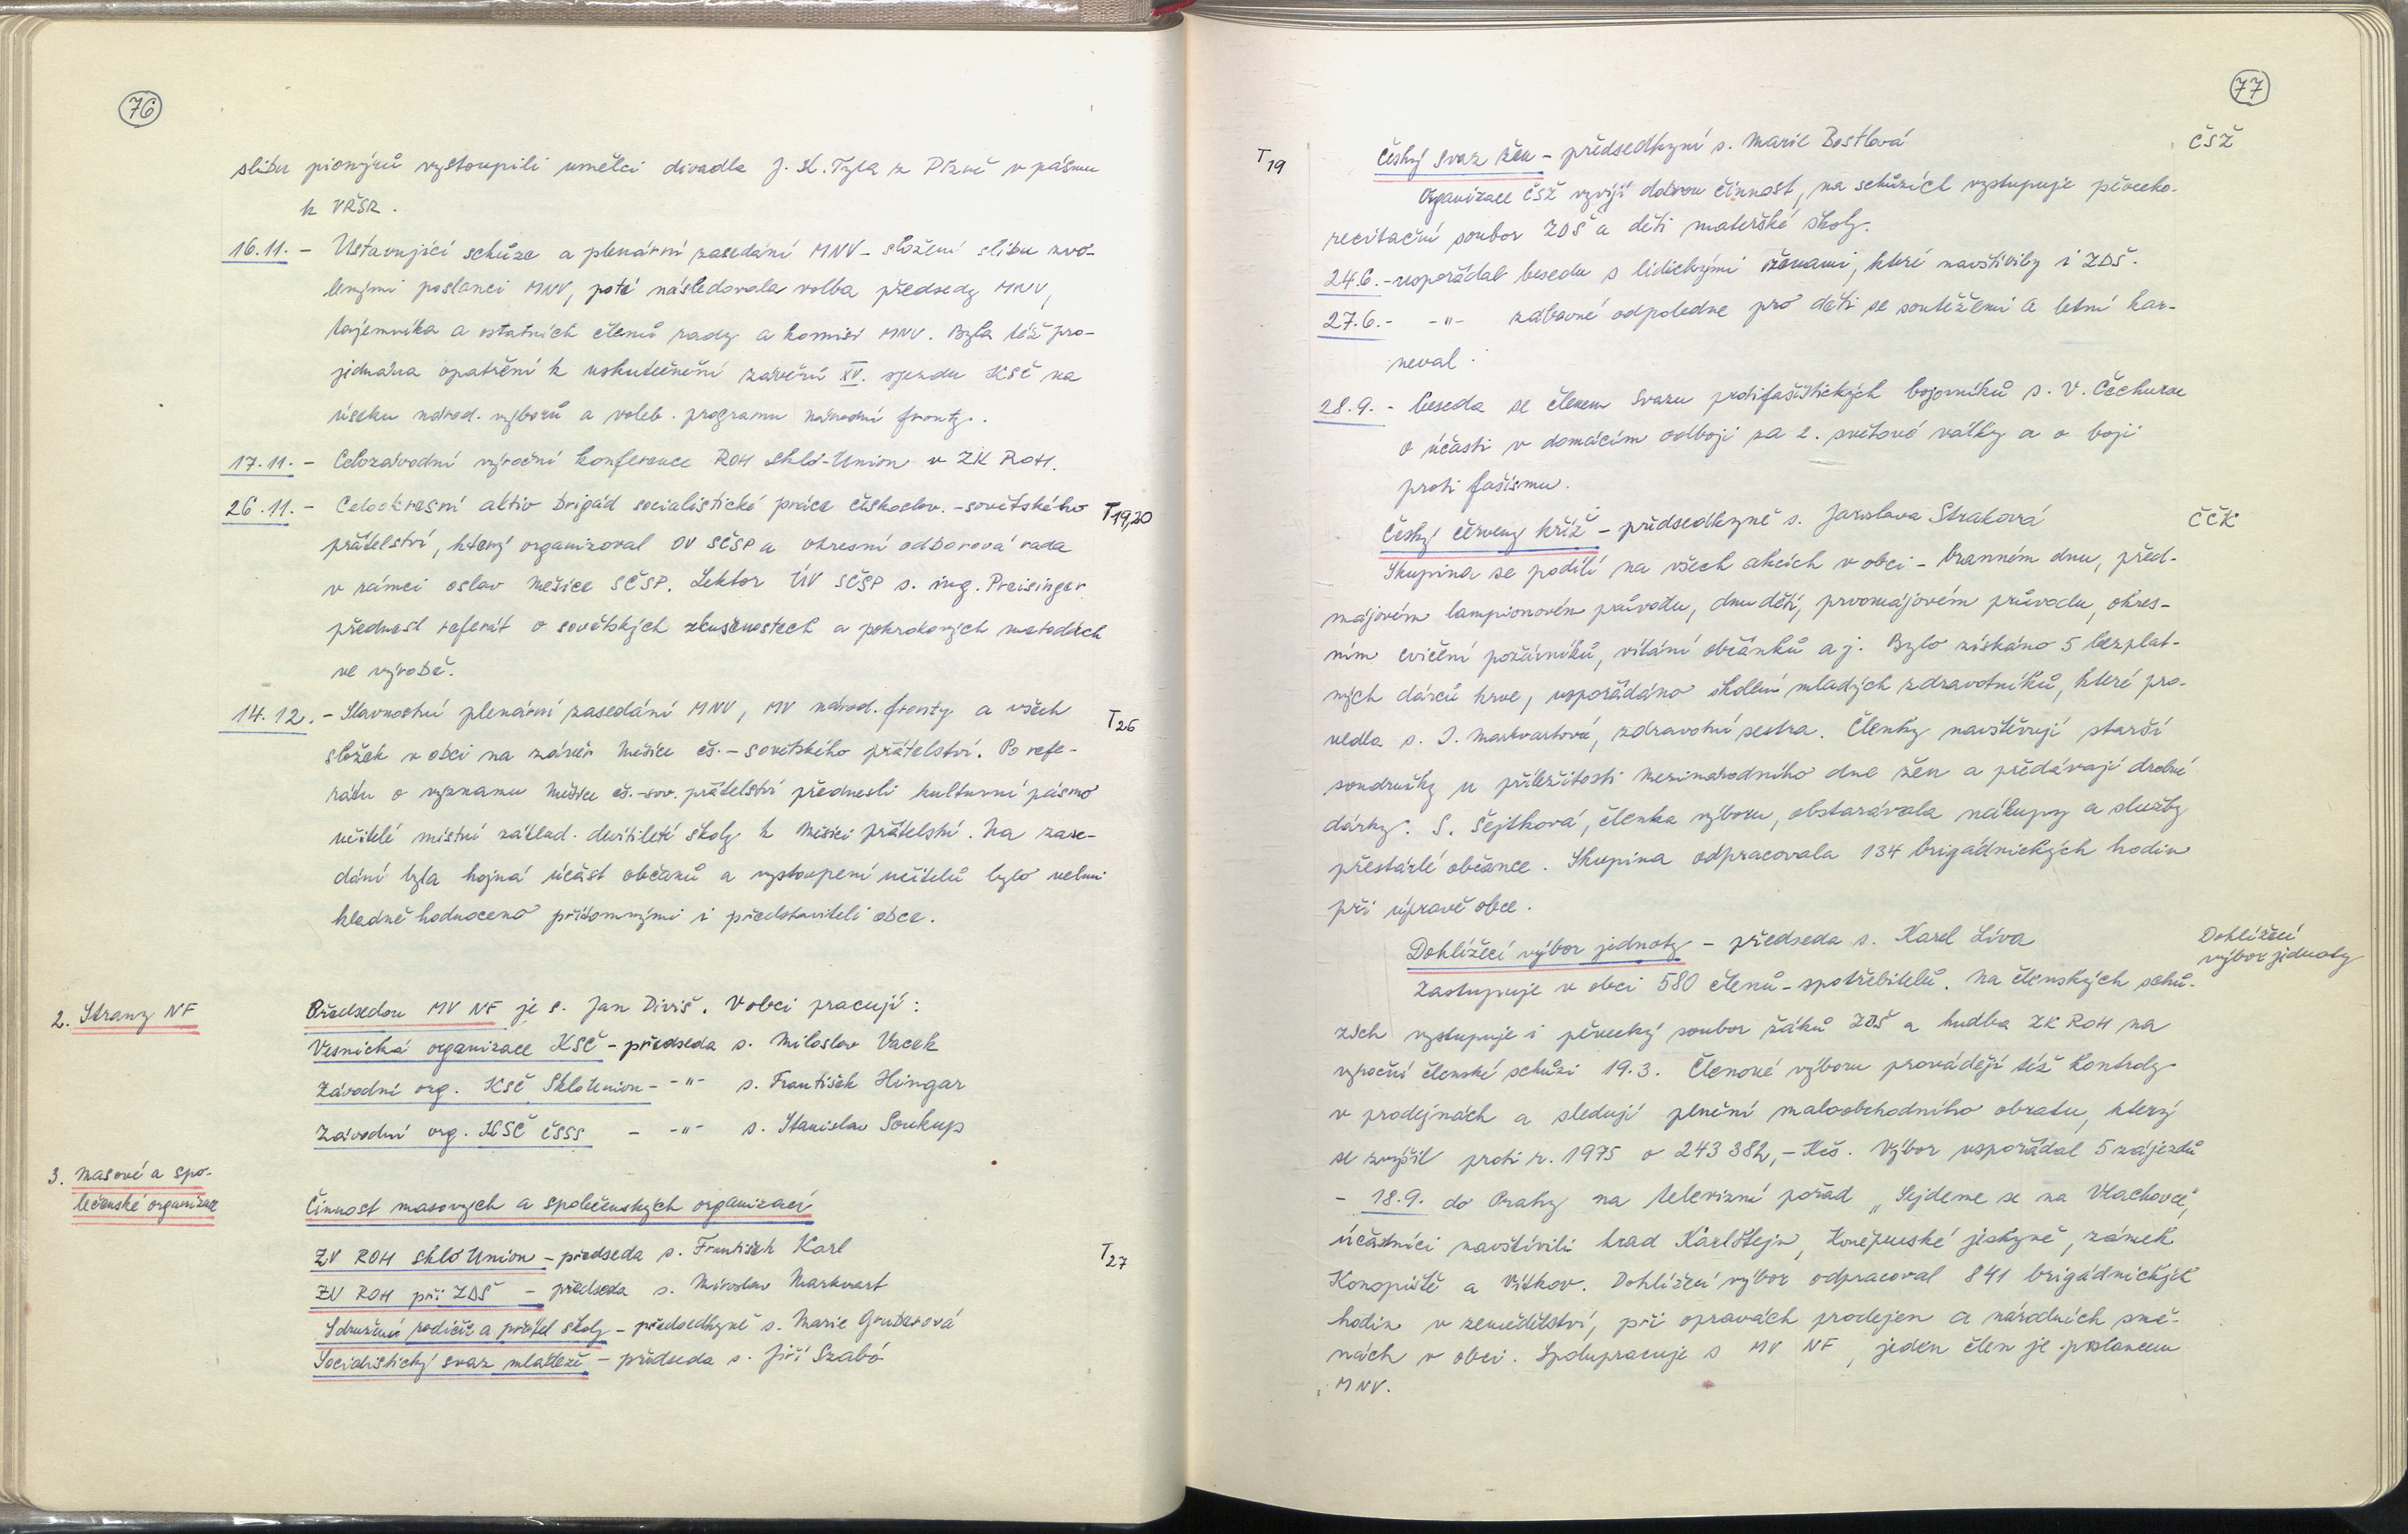 76
slibu pionýrů vystoupili umělci divadla J. K. Tyla z Plzně v pásmu
k VŘSR.
16.11. - Ustavující schůze a plenární zasedání MNV - složení slibu zvo-
lenými poslanci MNV, poté následovala volba předsedy MNV,
tajemníka a ostatních členů rady a komisí MNV. Byla též pro-
jednána opatření k uskutečnění závěrů XV. sjezdu KSČ na
úseku národ. výborů a voleb. programu národní fronty.
17.11. - Celozávodní výroční konference ROH Sklo-Union v ZK ROH.
26.11. - Celookresní aktiv Brigád socialistické práce českoslov.-sovětského T19,20
přátelství, který organizoval OV SČSP a okresní odborová rada
v rámci oslav Měsíce SČSP. Lektor ÚV SČSP s. ing. Preisinger
přednesl referát o sovětských zkušenostech a pokrokových metodách
ve výrobě.
14.12. - Slavnostní plenární zasedání MNV, MV národ. fronty a všech T26
složek v obci na závěr Měsíce čs.-sovětského přátelství. Po refe-
rátu o významu Měsíce čs.-sov. přátelství přednesli kulturní pásmo
učitelé místní základ. devítileté školy k Měsíci přátelství. Na zase-
dání byla hojná účast občanů a vystoupení učitelů bylo velmi
kladně hodnoceno přítomnými i představiteli obce.
2. Strany NF
Předsedou MV NF je s. Jan Diviš. V obci pracují:
Vesnická organizace KSČ - předseda s. Miloslav Vacek
Závodní org. KSČ Sklo Union - -"- s. František Hingar
Závodní org. KSČ ČSSS - -"- s. Stanislav Soukup
3. Masové a spo-
lečenské organizace
Činnost masových a společenských organizací
ZV ROH Sklo Union - předseda s. František Karl T27
ZV ROH při ZDŠ - předseda s. Miroslav Markvart
Sdružení rodičů a přátel školy - předsedkyně s. Marie Gruberová
Socialistický svaz mládeže - předseda s. Jiří Szabó
77
T19 Český svaz žen - předsedkyní s. Marie Bostlová ČSŽ
Organizace ČSŽ vyvíjí dobrou činnost, na schůzích vystupuje pěvecko-
recitační soubor ZDŠ a děti mateřské školy.
24.6. - uspořádal besedu s lidickými ženami, které navštívily i ZDŠ.
27.6. - -"- zábavné odpoledne pro děti se soutěžemi a letní kar-
neval.
28.9. - beseda se členem Svazu protifašistických bojovníků s. V. Čechurou
o účasti v domácím odboji za 2. světové války a o boji
proti fašismu.
Český červený kříž - předsedkyně s. Jaroslava Straková ČČK
Skupina se podílí na všech akcích v obci - branném dnu, před-
májovém lampionovém průvodu, dnu dětí, prvomájovém průvodu, okres-
ním cvičení požárníků, vítání občánků aj. Bylo získáno 5 bezplat-
ných dárců krve, uspořádáno školení mladých zdravotníků, které pro-
vedla s. J. Markvartová, zdravotní sestra. Členky navštěvují starší
soudružky u příležitosti Mezinárodního dne žen a předávají drobné
dárky. S. Šejtková, členka výboru, obstarávala nákupy a služby
přestárlé občance. Skupina odpracovala 134 brigádnických hodin
při úpravě obce.
Dohlížecí výbor jednoty - předseda s. Karel Líva Dohlížecí
výbor jednoty
Zastupuje v obci 580 členů-spotřebitelů. Na členských schů-
zích vystupuje i pěvecký soubor žáků ZDŠ a hudba ZK ROH na
výroční členské schůzi 19.3. Členové výboru provádějí též kontroly
v prodejnách a sledují plnění maloobchodního obratu, který
se zvýšil proti r. 1975 o 243 382,- Kčs. Výbor uspořádal 5 zájezdů
- 18.9. do Prahy na televizní pořad „Sejdeme se na Vlachovce",
účastníci navštívili hrad Karlštejn, Koněpruské jeskyně, zámek
Konopiště a Vítkov. Dohlížecí výbor odpracoval 841 brigádnických
hodin v zemědělství, při opravách prodejen a národních smě-
nách v obci. Spolupracuje s MV NF, jeden člen je poslancem
MNV.